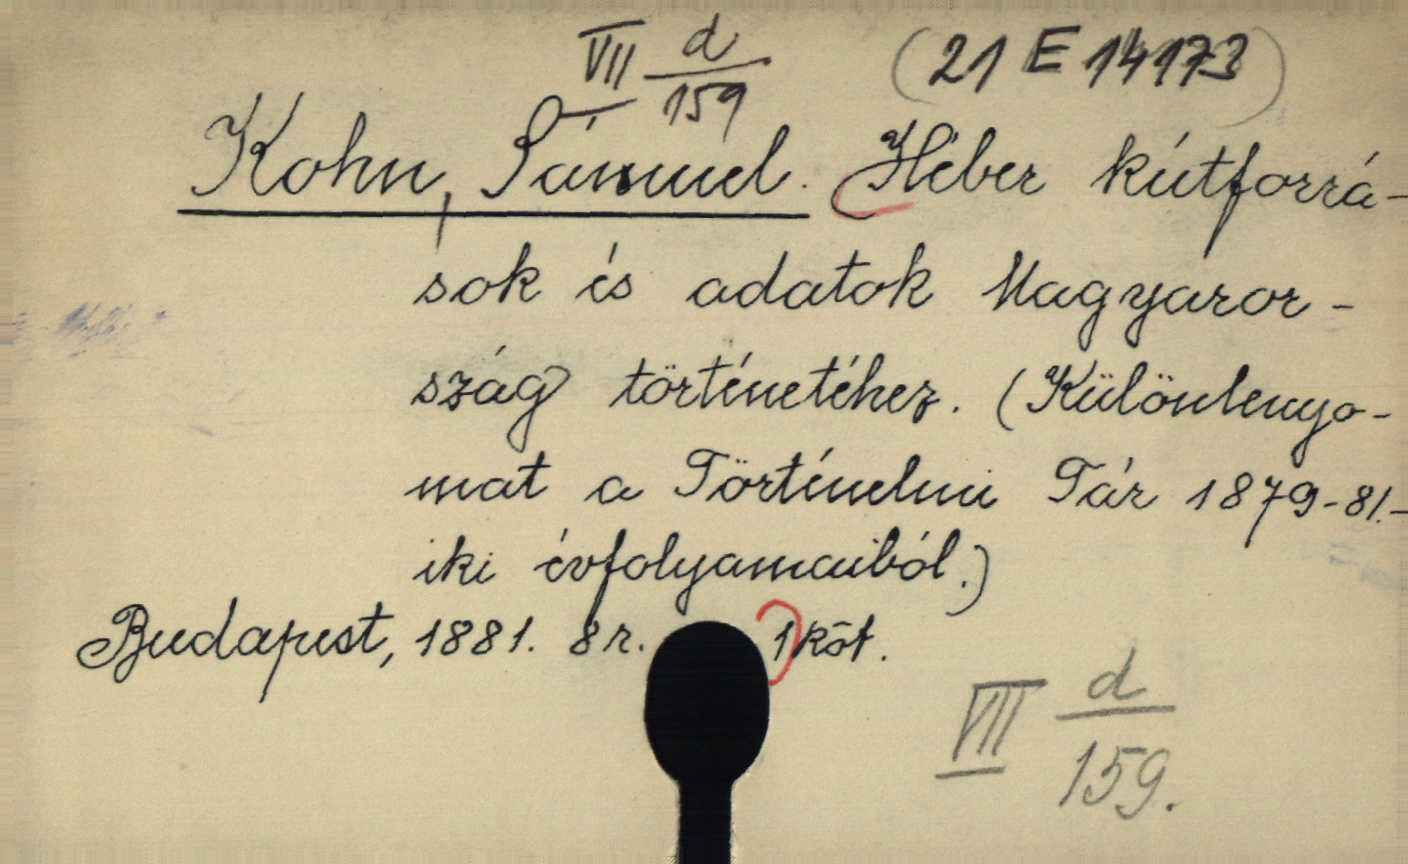 VII d/159 (21 E 14173)
Kohn, Sámuel. Héber kútforrá-
sok és adatok Magyaror-
szág történetéhez. (Különlenyo-
mat a Történelmi Tár 1879-81.-
iki évfolyamaiból.)
Budapest, 1881. 8r. 1 köt.
VII d/159.